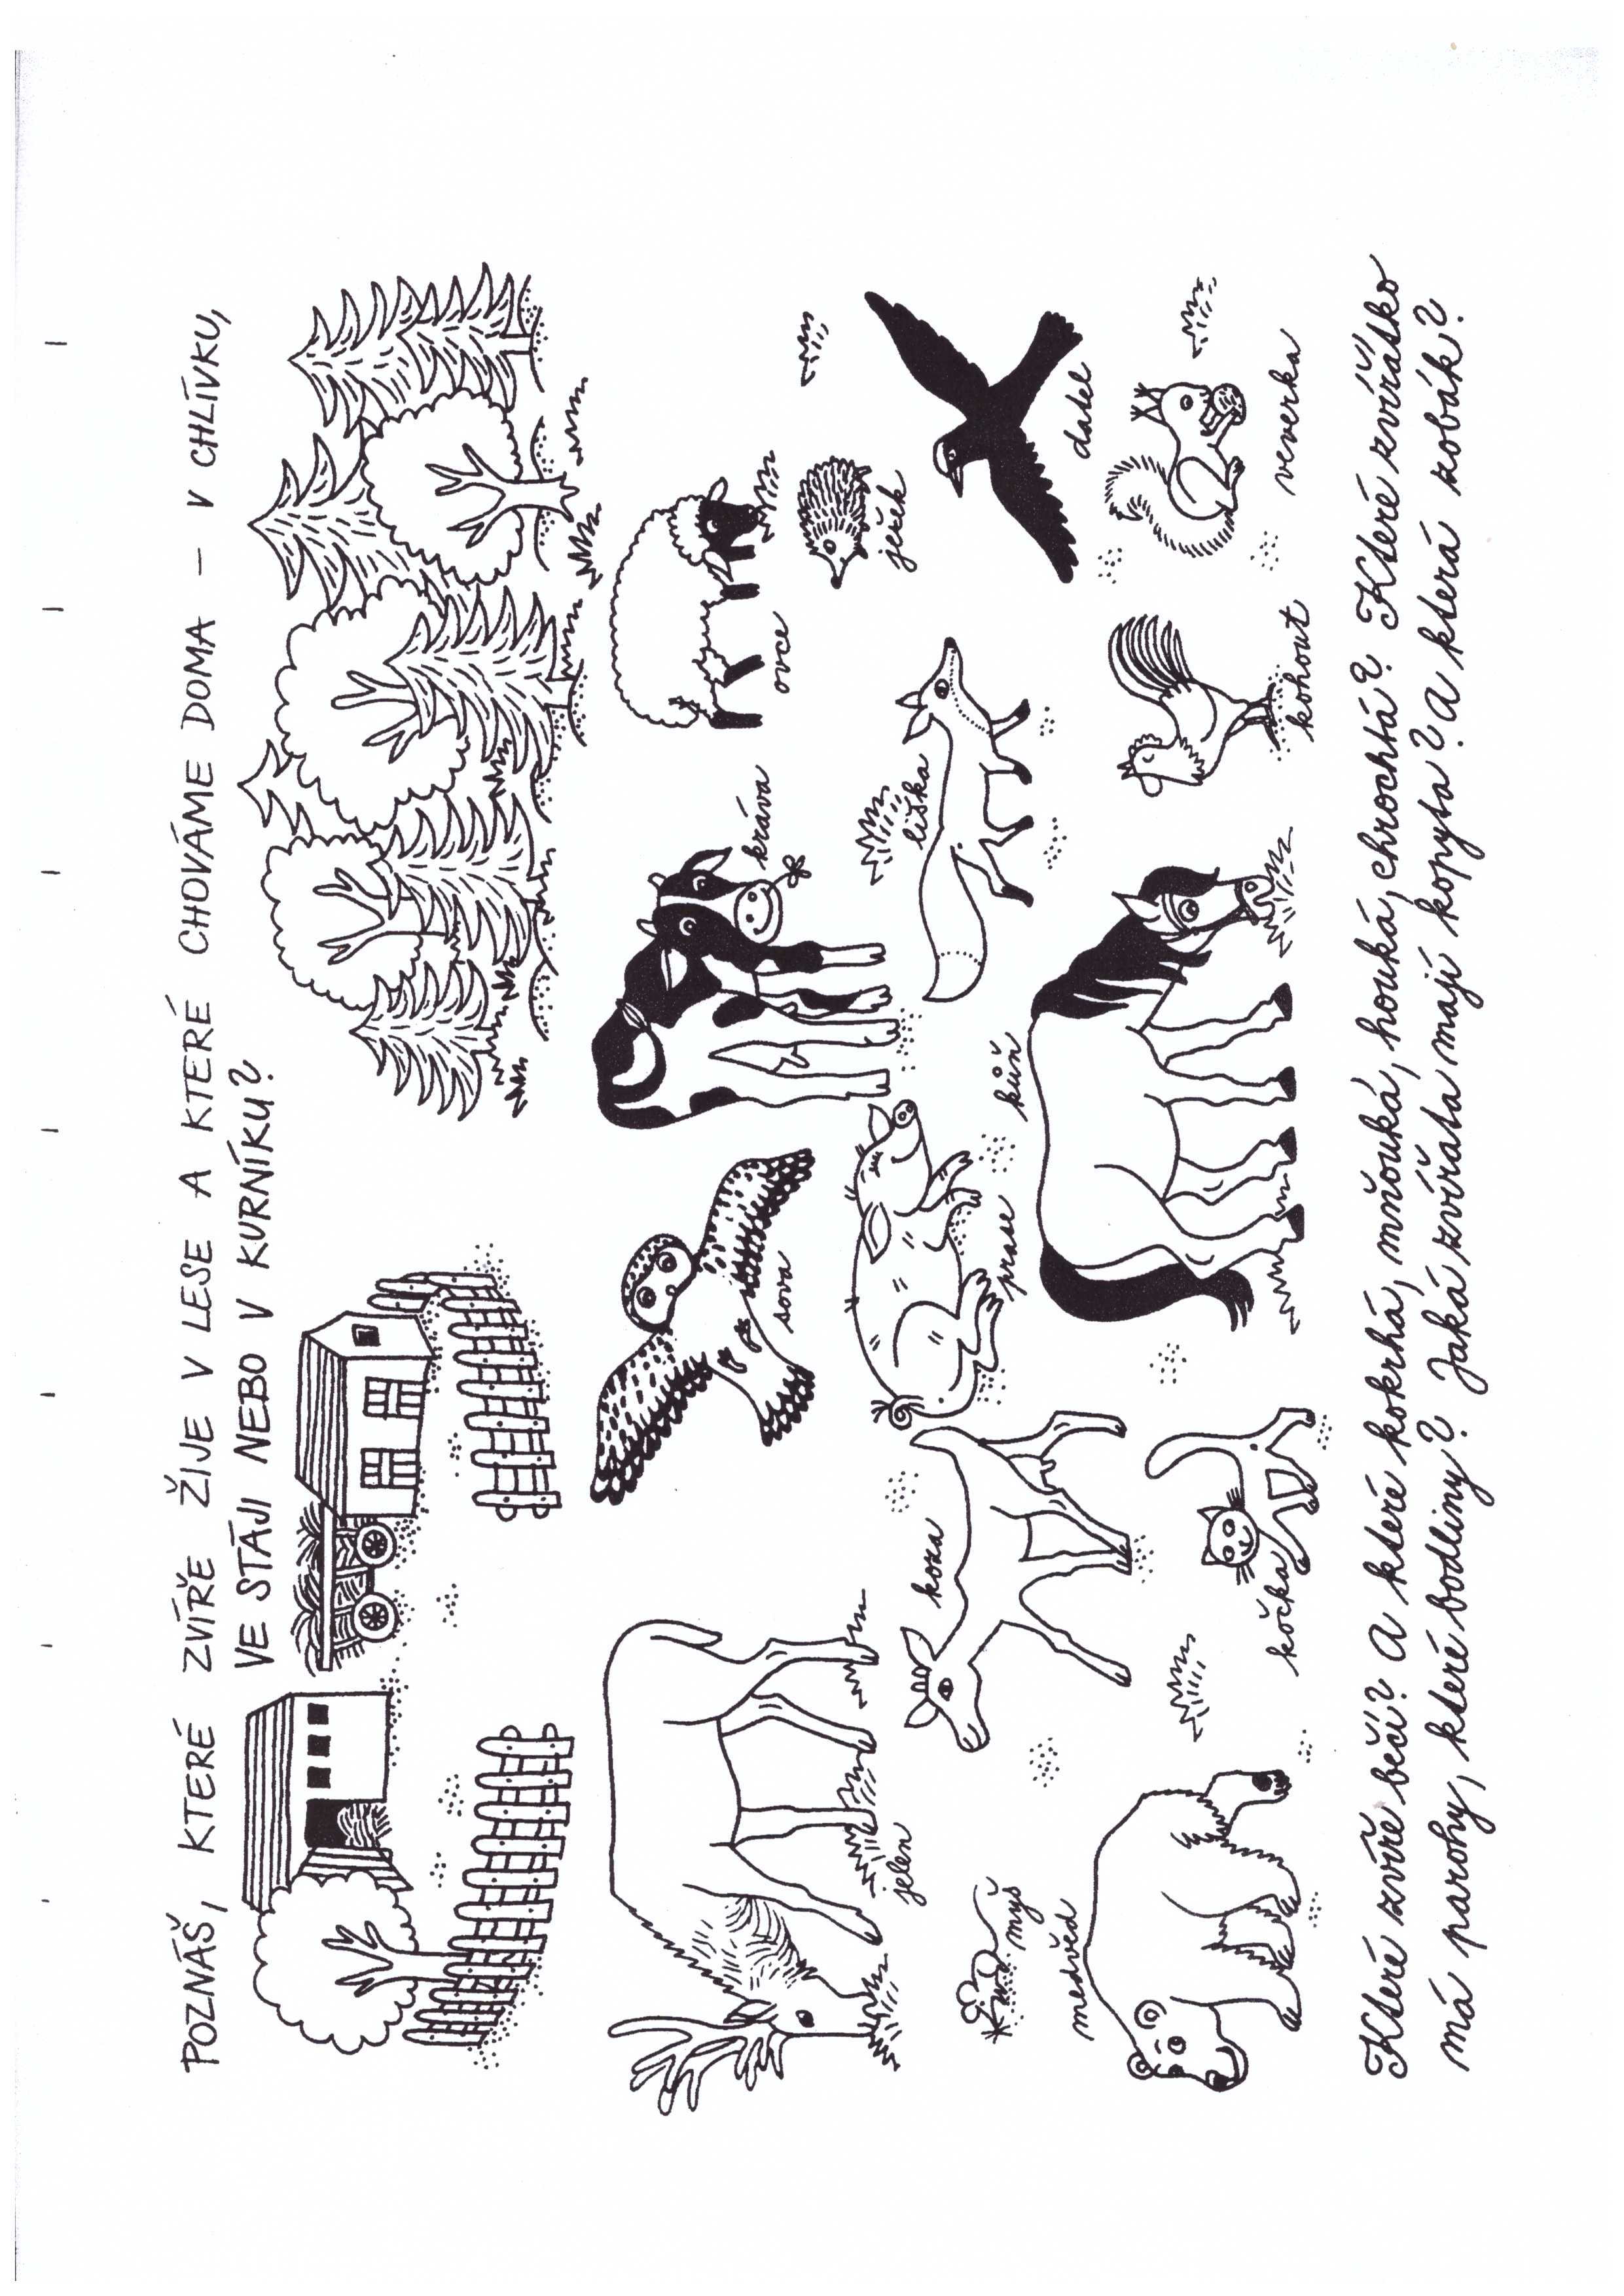 POZNÁŠ, KTERÉ ZVÍŘE ŽIJE V LESE A KTERÉ CHOVÁME DOMA – V CHLÍVKU,
VE STÁJI NEBO V KURNÍKU?
jelen
sova
kráva
ovce
ježek
myš
koza
prase
liška
datel
medvěd
kočka
kůň
kohout
veverka
Které zvíře bečí? A které kokrhá, mňouká, houká, chrochtá? Které zvířátko
má parohy, které bodliny? Jaká zvířata mají kopyta? A která zobák?